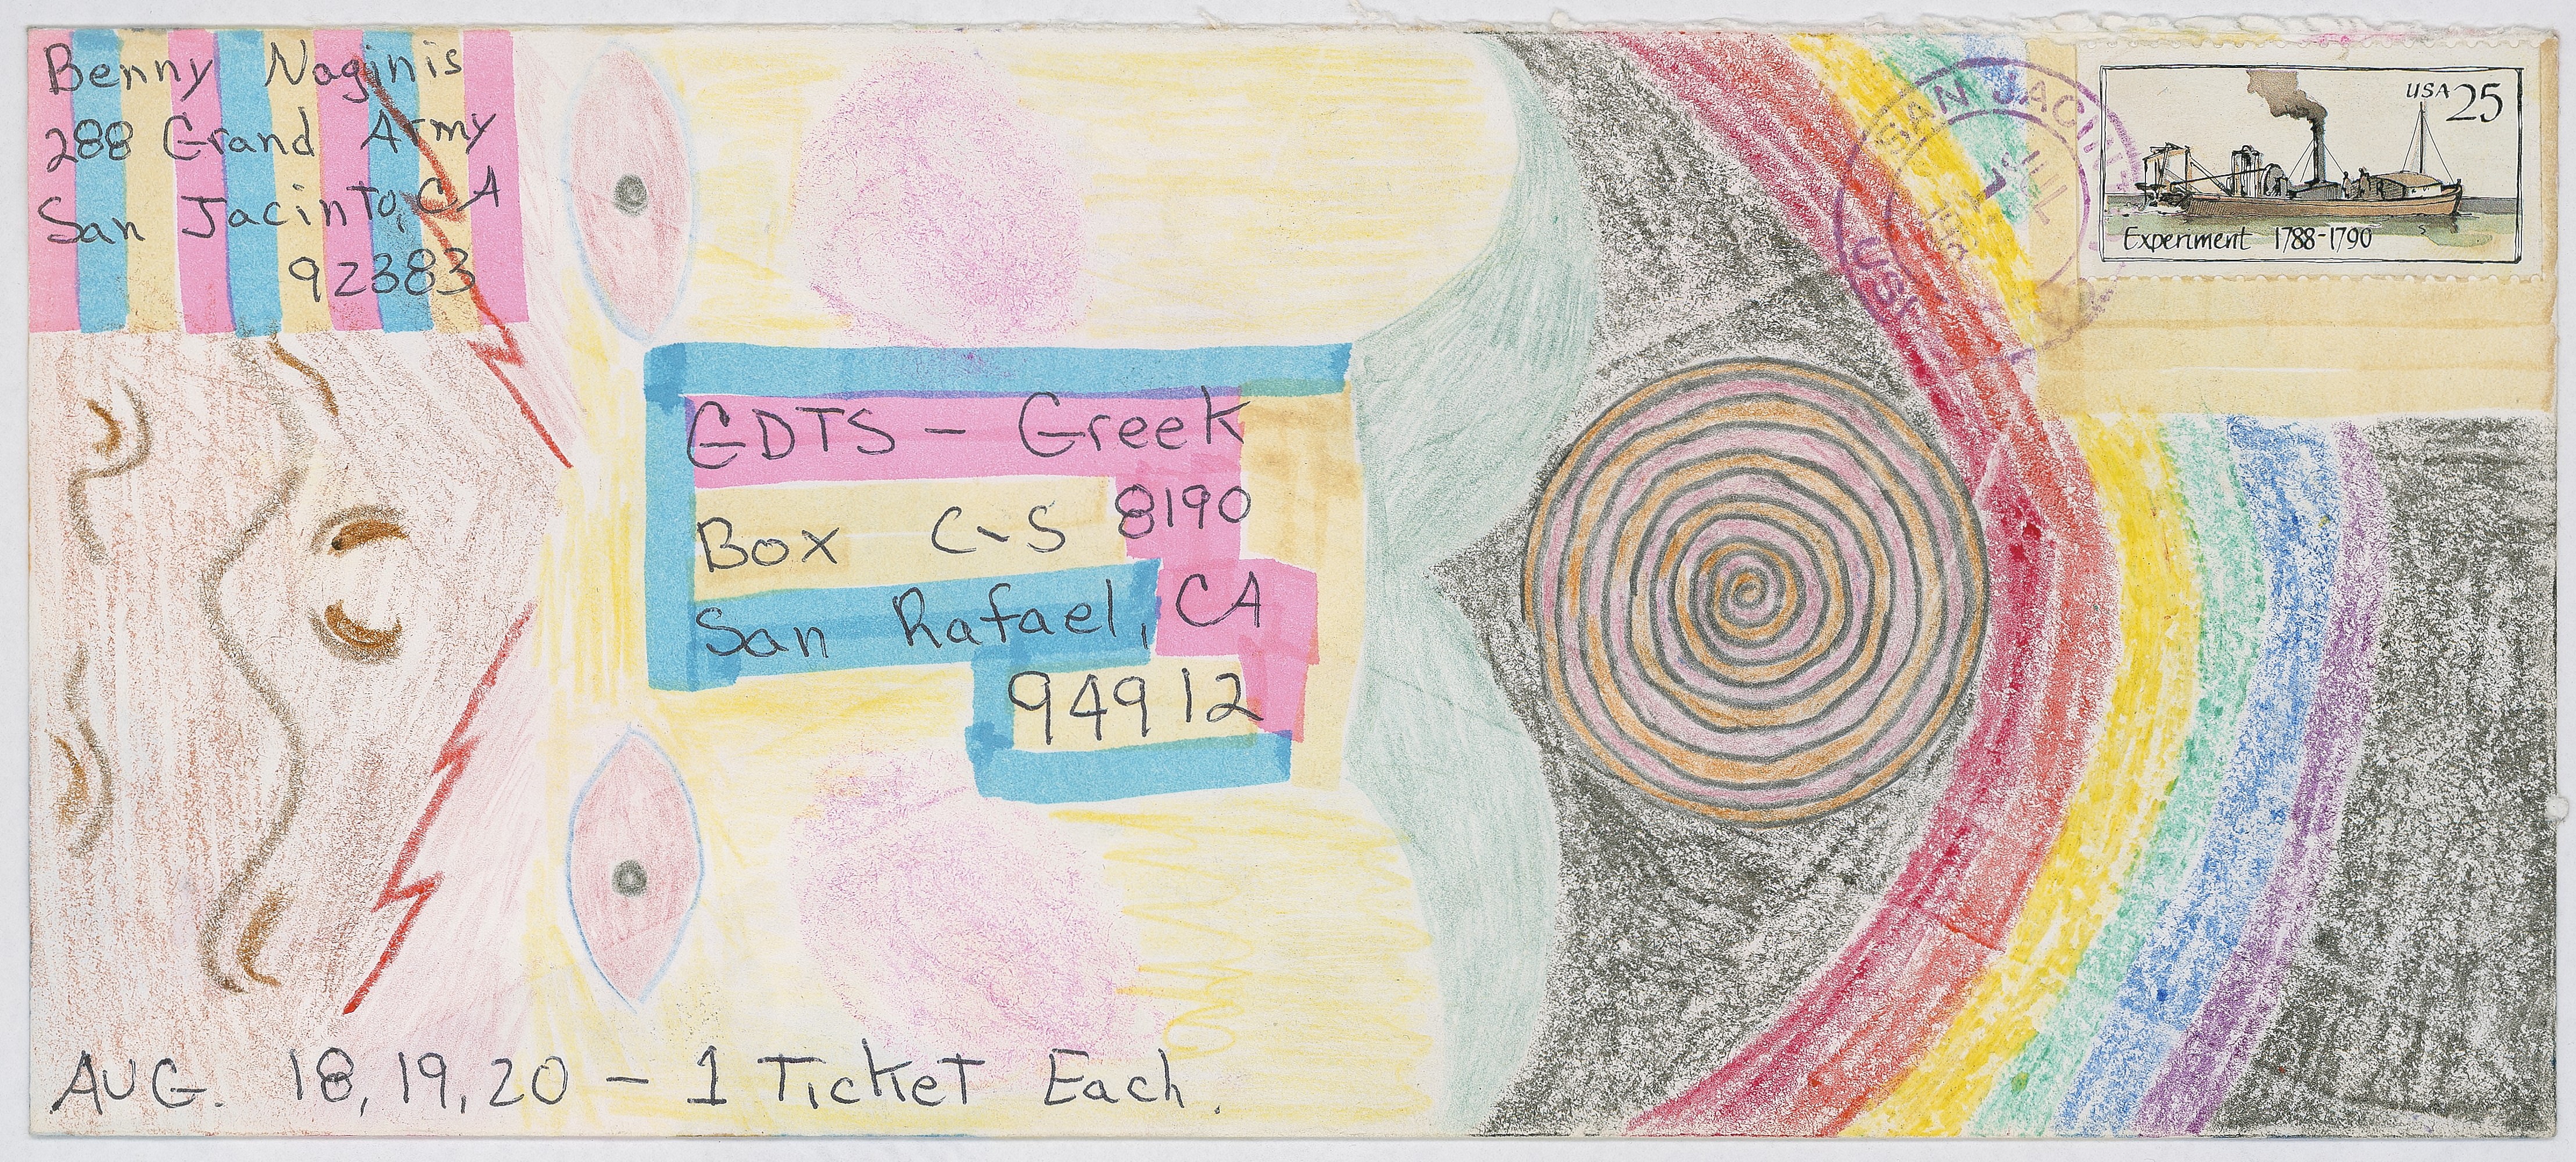 Benny Naginis
288 Grand Army
San Jacinto, CA
92383
USA 25
Experiment 1788-1790
SAN JACINT
JUL
USP
GDTS - Greek
Box C-S 8190
San Rafael, CA
94912
AUG. 18, 19, 20 - 1 Ticket Each.